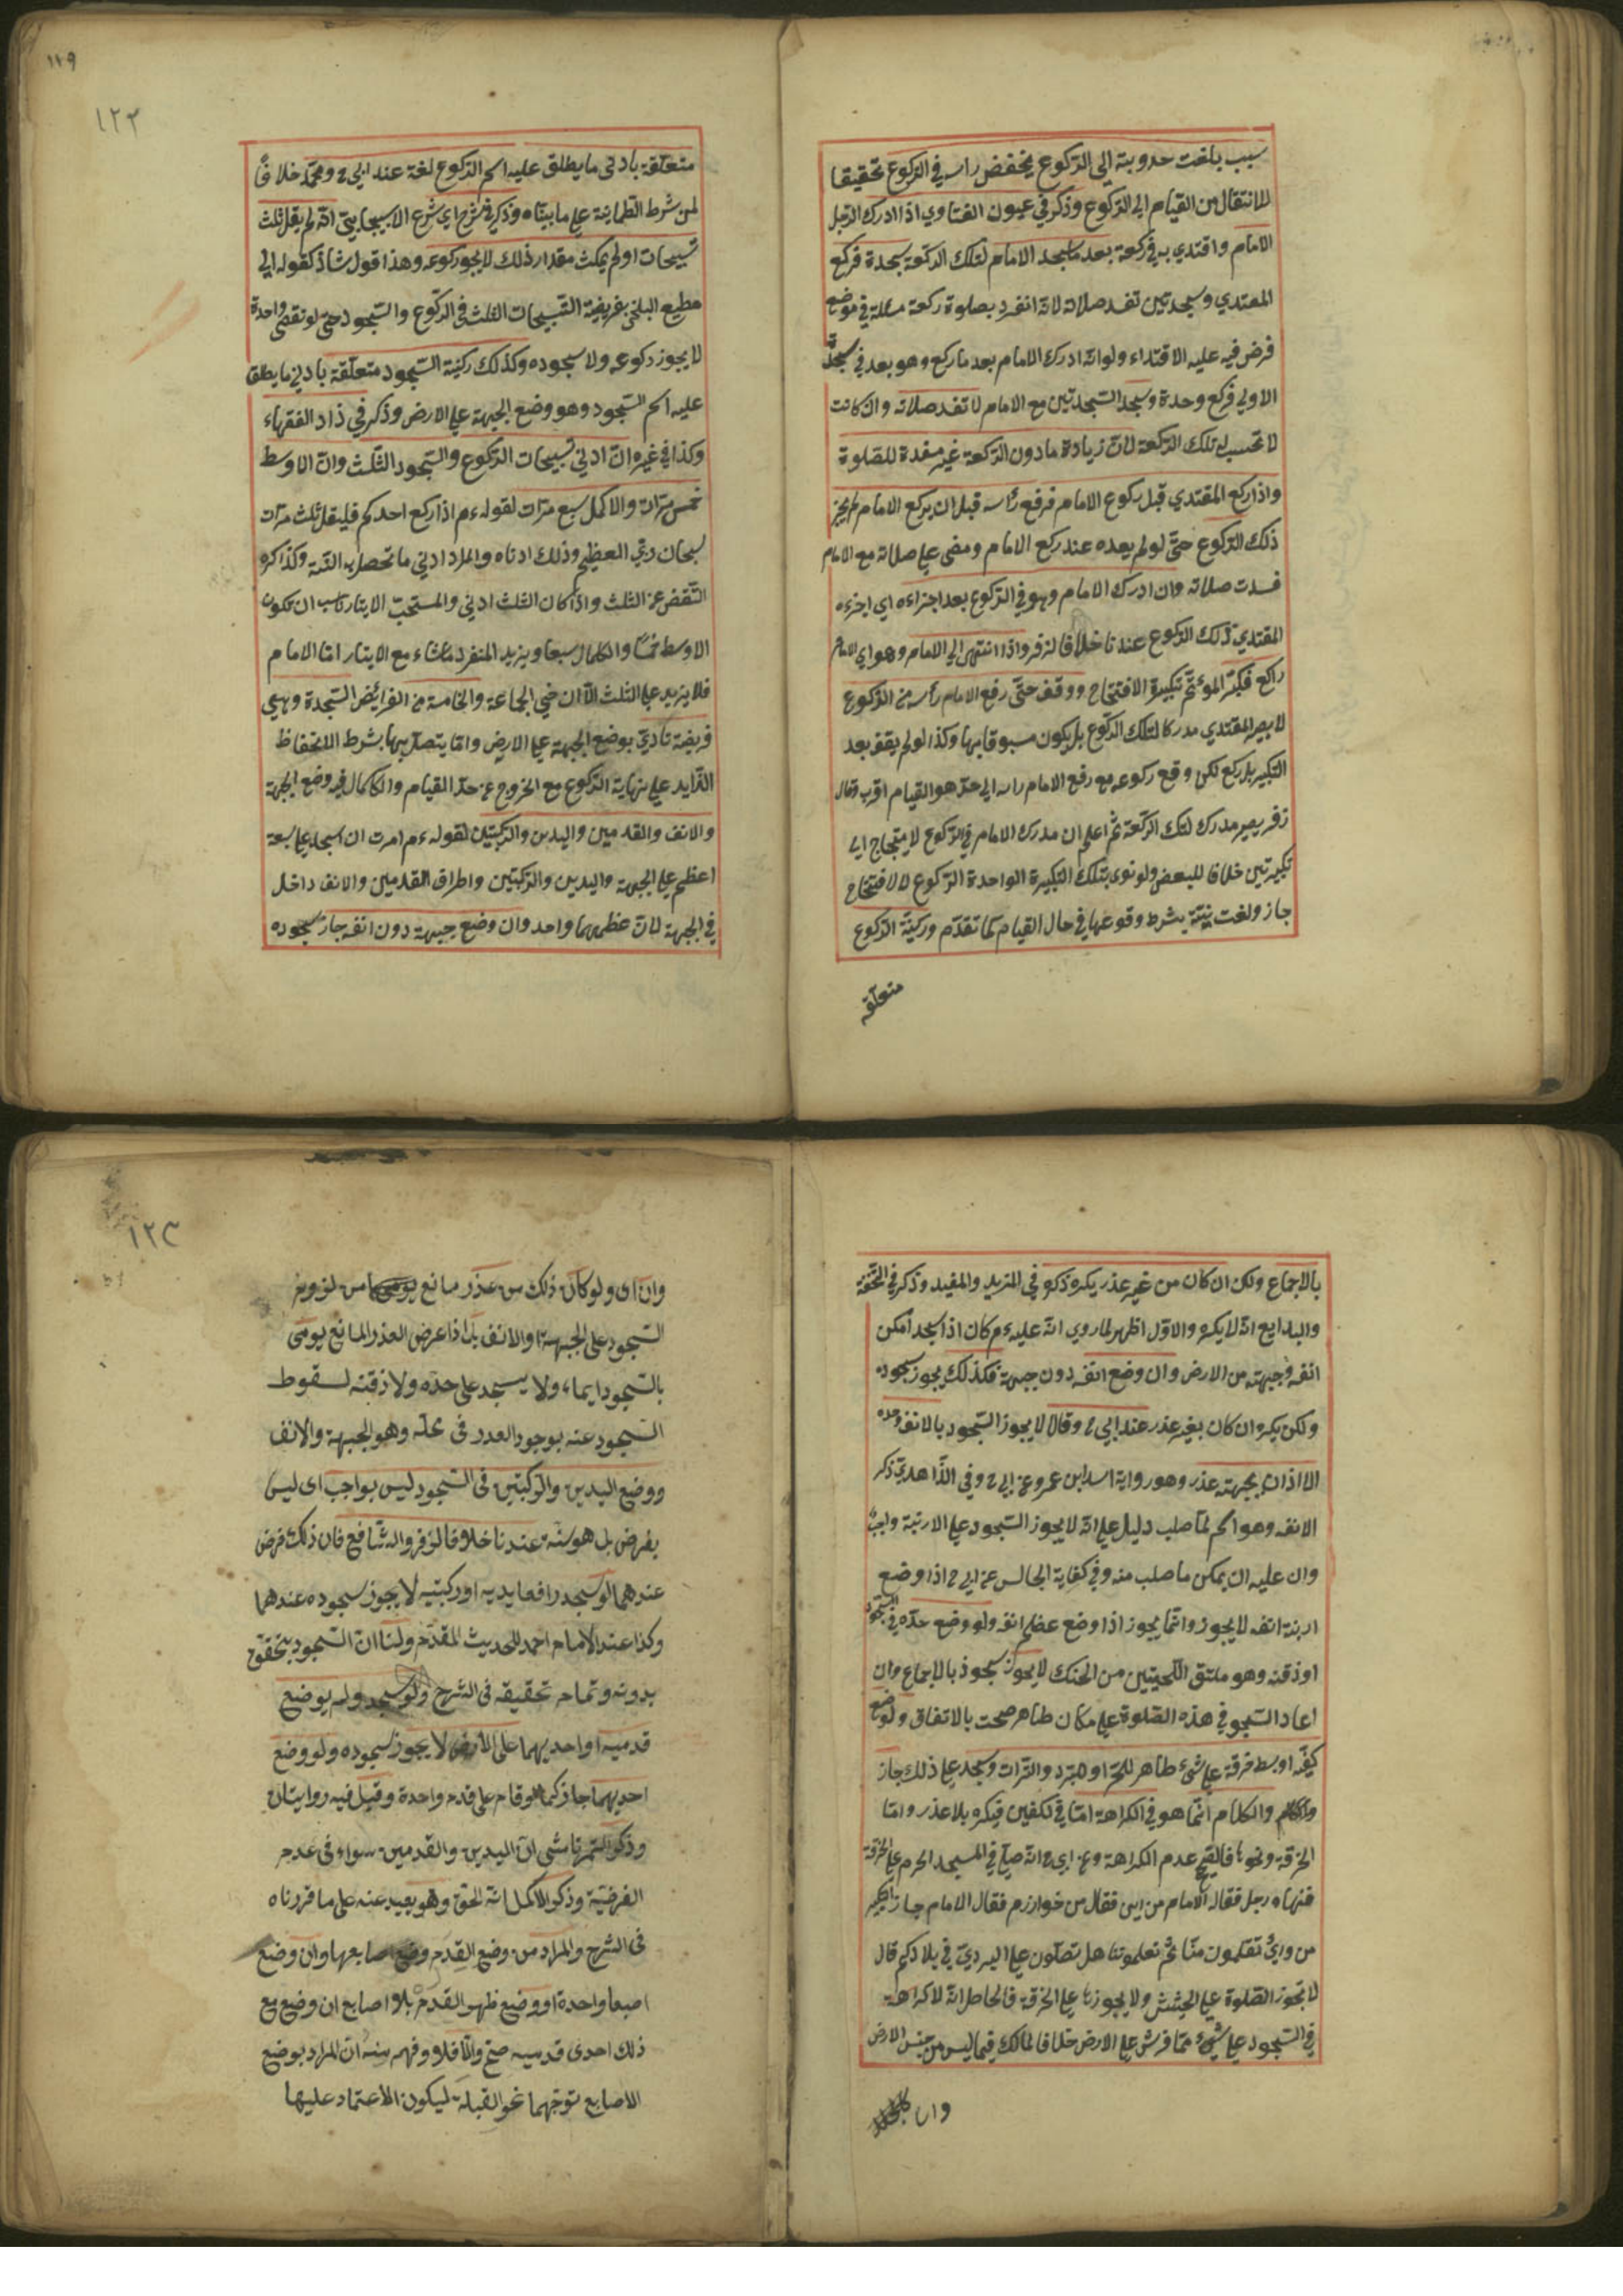 سبب بلغت حدوبته الى الركوع يخفض راسه في الركوع تحقيقا
للانتقال من القيام الى الركوع وذكر في عيون الفتاوي اذا ادرك الرجل
الامام واقتدي به في ركعة بعد ما سجد الامام لتلك الركعة سجدة فركع
المقتدي وسجد سجدتين تفسد صلاته لانه انفرد بصلوة ركعة في موضع
فرض فيه عليه الاقتداء ولو انه ادرك الامام بعد ما ركع وهو بعد في سجدة
الاولي فركع وحدة وسجد السجدتين مع الامام لا تفسد صلاته وان كانت
لا تحسب له تلك الركعة لان زيادة ما دون الركعة غير مفسدة للصلوة
واذا ركع المقتدي قبل ركوع الامام فرفع رأسه قبل ان يركع الامام لم يجز
ذلك الركوع حتى لو لم يعده عند ركع الامام ومضى علي صلاته مع الامام
فسدت صلاته وان ادرك الامام وهو في الركوع بعد اجزاءه اي اجزءه
المقتدي ذلك الركوع عندنا خلافا لزفر واذا انتهى الي الامام وهو اي الامام
راكع فكبر المؤتم تكبيرة الافتتاح ووقف حتى رفع الامام رأسه من الركوع
لا يصير المقتدي مدركا لتلك الركوع بل يكون مسبوقا بها وكذا لو لم يقف بعد
التكبير بل ركع لكن وقع ركوعه مع رفع الامام راسه الي حد هو القيام اقرب وقال
زفر يصير مدرك لتلك الركعة ثم اعلم ان مدرك الامام في الركوع لا يحتاج الي
تكبيرتين خلافا للبعض ولو نوي بتلك التكبيرة الواحدة الركوع لا الافتتاح
جاز ولغت نيته بشرط وقوعها في حال القيام كما تقدم وركنية الركوع
متعلقة
١١٩
١٢٢
متعلقة بادنى ما يطلق عليه اسم الركوع لغة عند ابي ح ومحمد خلافا
لمن شرط الطمانينة علي ما بيناه وذكر في شرح اي شرع الاسبيجابي انه لم يقل ثلث
تسبيحات او لم يمكث مقدار ذلك لا يجوز ركوعه وهذا قول شاذ كقول ابي
مطيع البلخي بفريضة التسبيحات الثلث في الركوع والسجود حتى لو نقص واحدة
لا يجوز ركوعه ولا سجوده وكذلك ركنية السجود متعلقة بادني ما يطلق
عليه اسم السجود وهو وضع الجبهة علي الارض وذكر في زاد الفقهاء
وكذا في غيره ان ادني تسبيحات الركوع والسجود الثلث وان الاوسط
خمس مرات والاكمل سبع مرات لقوله ءم اذا ركع احدكم فليقل ثلث مرات
سبحان ربي العظيم وذلك ادناه والمراد ادني ما تحصل به السنة وكذا كره
النقص عن الثلث واذا كان الثلث ادني والمستحب الايتار ناسب ان يكون
الاوسط خمسا والكمال سبعا ويزيد المنفرد ما شاء مع الايتار اما الامام
فلا يزيد علي الثلث الا ان رضي الجماعة والخامسة من الفرائض السجدة وهي
فريضة تتادي بوضع الجبهة علي الارض وما يتصل بها بشرط الانخفاظ
الزايد علي نهاية الركوع مع الخروج عن حد القيام والكمال فيه وضع الجبهة
والانف والقدمين واليدين والركبتين لقوله ءم امرت ان اسجد علي سبعة
اعظم علي الجبهة واليدين والركبتين واطراف القدمين والانف داخل
في الجبهة لان عظمهما واحد وان وضع جبهته دون انفه جاز سجوده
بالاجماع ولكن ان كان من غير عذر يكره ذكره في المزيد والمفيد وذكر في التحفة
والبدايع انه لا يكره والاول اظهر لما روي انه عليه ءم كان اذا سجد امكن
انفه وجبهته من الارض وان وضع انفه دون جبهة فكذلك يجوز سجوده
ولكن يكره ان كان بغير عذر عند ابي ح وقالا لا يجوز السجود بالانف وحده
الا اذا بجبهته عذر وهو رواية اسد ابن عمرو عن ابي ح وفي الزاهدي ذكر
الانف وهو اسم لما صلب دليل علي انه لا يجوز السجود علي الارنبة
وان عليه ان يمكن ما صلب منه وفي كفاية المجالس عن ابي ح اذا وضع
ارنبة انفه لا يجوز وانما يجوز اذا وضع عظم انفه ولو وضع خده في السجود
او ذقنه وهو ملتقي اللحيتين من الحنك لا يجوز سجوده بالاجماع وان
اعاد السجود في هذه الصلوة علي مكان طاهر صحت بالاتفاق ولو وضع
كفه او بسط خرقة علي شئ طاهر للحر او البرد والتراب وسجد علي ذلك جاز
والكلام انما هو في الكراهة اما في لكفين فيكره بلا عذر واما
الخرقة ونحوها فالصحيح عدم الكراهة وعن ابي ح انه صلي في المسجد الحرم علي الخرقة
فنهاه رجل فقال له الامام من اين فقال من خوارزم فقال الامام جاز التكبير
من ورائ تعلمون منا ثم تعلموننا هل تصلون علي البردي في بلادكم قال
لا تجوز الصلوة علي الحشيش ولا يجوزها علي الخرقة فالحاصل انه لا كراهة
في السجود علي شئ مما فرش علي الارض خلافا لمالك فيما ليس من جنس الارض
وان
١٢٣
وان اى ولو كان ذلك من عذر مانع
السجود على الجبهة او الانف بل اذا عرض العذر المانع يومى
بالسجود ايماء ولا يسجد على خده ولا ذقنه لسقوط
السجود عنه بوجود العدر فى محله وهو الجبهة والانف
ووضع اليدين والركبتين فى السجود ليس بواجب اى ليس
بفرض بل هو سنة عندنا خلافا لزفر والشافع فان ذلك فرض
عندهما لو سجد رافعا يديه او ركبتيه لا يجوز سجوده عندهما
وكذا عند الامام احمد للحديث المقدم ولنا ان السجود يتحقق
بدونه وتمام تحقيقه فى الشرح ولو سجد ولم يوضع
قدميه او احديهما على الارض لا يجوز سجوده ولو وضع
احديهما جاز كما لو قام على قدم واحدة وقيل فيه روايتان
وذكر التمرتاشى ان اليدين والقدمين سواء فى عدم
الفرضية وذكر الاكمل انه الحق وهو بعيد عنه على ما قررناه
فى الشرح والمراد من وضع القدم وضع اصابعها وان وضع
اصبعا واحدة او وضع ظهر القدم بلا اصابع ان وضع مع
ذلك احدى قدميه صح والا فلا وفهم منه ان المراد بوضع
الاصابع توجهها نحو القبلة ليكون الاعتماد عليها